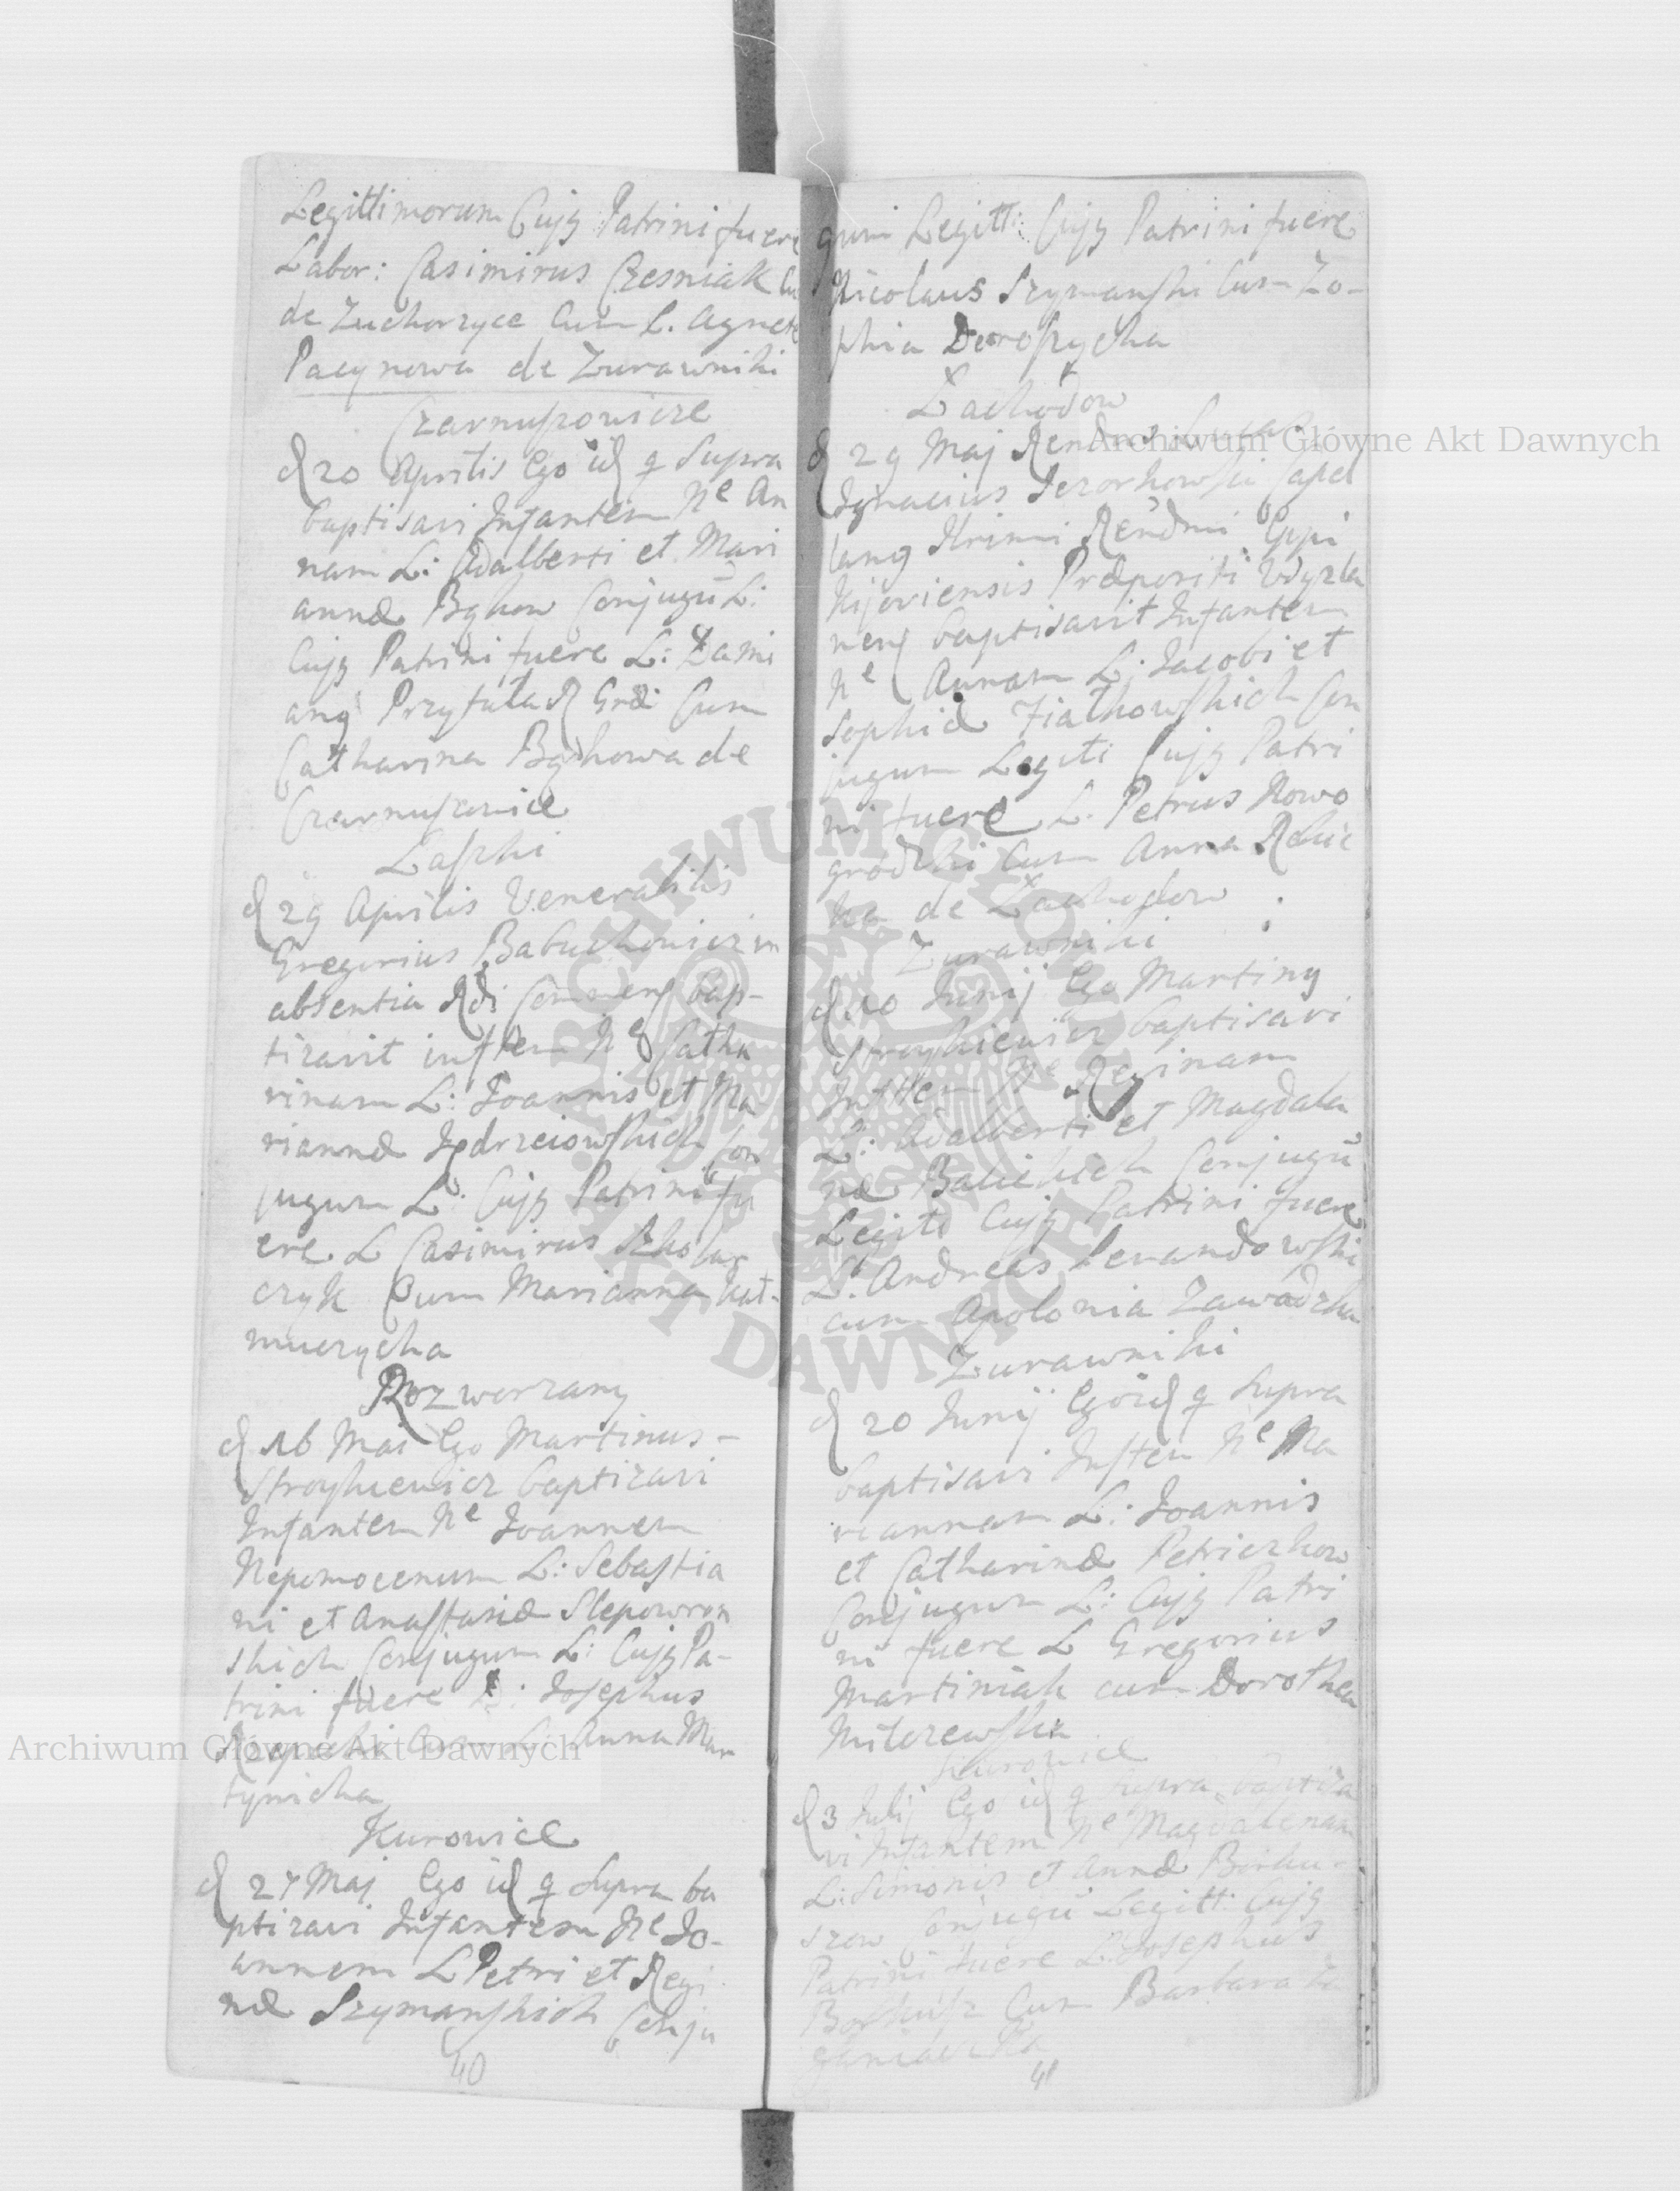 Legittimorum Cujg Patrini fuere
Labor: Casimirus Czesniak
de Zuchorzyce Cum L. Agnete
Pacynowa de Zurawniki
Czarnuszowice
d 20 Aprilis Ego id q Supra
baptisavi Infantem Ne An
nam L: Adalberti et Mari
annæ Bykow Conjugū L:
Cujg Patrini fuere L: Dami
ang Przytuła Cum
Catharina Bykowa de
Czarnuszowice
Laszki
d 29 Aprilis Venerabilis
Gregorius Babuchowicz in
absentia Rdi Commend bap-
tizavit inftem Ne Catha
rinam L: Joannis et Ma
riannæ Jędrzeiowskich Con
jugum L: Cujg Patrini fu
ere L Casimirus
czyk Cum Marianna Kat-
muczycha
Rozworzany
d 16 Mai Ego Martinus
Stroykiewicz baptizavi
Infantem Ne Joannem
Nepomocenum L: Sebastia
ni et Anastasiæ Slepowron
skich Conjugum L: Cujg Pa-
trini fuere L: Josephus
Rzepecki Cum L: Anna Mar
tynicha
Kurowice
d 27 Maj Ego id q Supra ba
ptizavi Infantem Ne Jo-
annem L Petri et Regi
næ Szymanskich Conju
40
gum Legitt: Cujg Patrini fuere
Nicolaus Szymanski Cum Zo-
phia Doroszycha
Zachodow
d 29 Maj Rendus
Ignacius Jezorkowski Capel
lang Illrimi Rendmi Eppi
Kijoviensis Præpositi
baptisavit Infantem
Ne Annam L: Jacobi et
Sophiæ Fiałkowskich Con
jugum Legiti Cujg Patri
ni fuere L. Petrus Nowo
grodzki Cum Anna
ka de Zachodow
Zurawniki
d 10 Junij Ego Marting
Stroykiewicz baptisavi
Inftem Ne Reginam
L: Adalberti et Magdale
næ Balickich Conjugū
Legiti Cujg Patrini fuere
L: Andreas Lewandowski
cum Apolonia Zawadzka
Zurawniki
d 20 Junij Ego id q Supra
baptisavi Inftem Ne Ma
riannam L: Joannis
et Catharinæ Petriczkow
Conjugum L: Cujg Patri
ni fuere L Gregorius
Martiniak cum Dorothea
Milczewska
Kurowice
d 3 Julij Ego id q Supra baptiza
vi Infantem Ne Magdalenam
L: Simonis et Annæ Borku-
szow Conjugū Legitt: Cujg
Patrini fuere L: Josephus
Borkusz Cum Barbara
41
Archiwum Główne Akt Dawnych
Archiwum Główne Akt Dawnych
ARCHIWUM GŁÓWNE AKT DAWNYCH